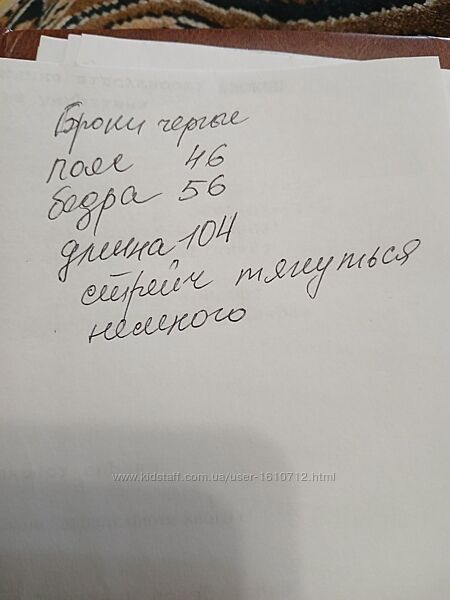 Брюки черные
пояс 46
бедра 56
длина 104
стрейч тянуться
немного
www.kidstaff.com.ua/user-1610712.html